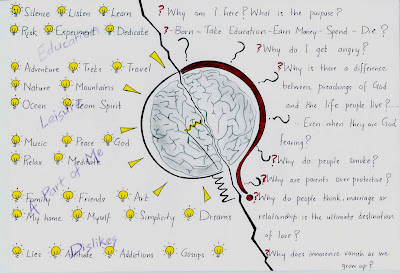 Silence Listen Learn
Risk Experiment Dedicate
Education
Adventure Treks Travel
Nature Mountains
Ocean Team Spirit
Leisure
Music Peace God
Relax Meditate
A Part of Me
Family Friends Art
My home Myself Simplicity Dreams
Dislikes
Lies Attitude Addictions Gossips
? Why am I here? What is the purpose?
?-Born-Take Education-Earn Money-Spend-Die?
? Why do I get angry?
? Why is there a difference
between preachings of God
and the life people live?...
Even when they are God
fearing?
? Why do people smoke?
? Why are parents over protective?
? Why do people think, marriage or
relationship is the ultimate destination
of love?
? Why does innocence vanish as we
grow up?